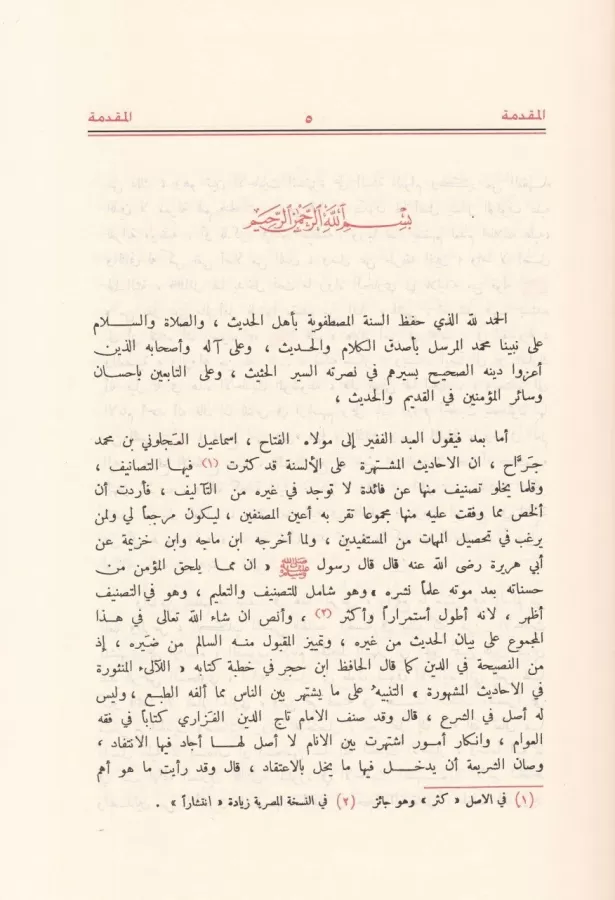 المقدمة ٥ المقدمة
بسم الله الرحمن الرحيم
الحمد لله الذي حفظ السنة المصطفوية بأهل الحديث ، والصلاة والسلام
على نبينا محمد المرسل بأصدق الكلام والحديث ، وعلى آله وأصحابه الذين
أعزوا دينه الصحيح بسيرهم في نصرته السير الحثيث ، وعلى التابعين بإحسان
وسائر المؤمنين في القديم والحديث ،
أما بعد فيقول العبد الفقير إلى مولاه الفتاح ، اسماعيل العجلوني بن محمد
جرَّاح ، ان الاحاديث المشتهرة على الألسنة قد كثرت (١) فيها التصانيف ،
وقلما يخلو تصنيف منها عن فائدة لا توجد في غيره من التآليف ، فأردت أن
ألخص مما وقفت عليه منها مجموعا تقر به أعين المصنفين ، ليكون مرجعاً لي ولمن
يرغب في تحصيل المهمات من المستفيدين ، ولما أخرجه ابن ماجه وابن خزيمة عن
أبي هريرة رضى الله عنه قال قال رسول ﷺ « ان مما يلحق المؤمن من
حسناته بعد موته علماً نشره » وهو شامل للتصنيف والتعليم ، وهو في التصنيف
أظهر ، لانه أطول أستمراراً وأكثر (٢) ، وأنص ان شاء الله تعالى في هذا
المجموع على بيان الحديث من غيره ، وتمييز المقبول منه السالم من ضَيره ، إذ
من النصيحة في الدين كما قال الحافظ ابن حجر في خطبة كتابه « اللآلىء المنثورة
في الاحاديث المشهورة » التنبيهُ على ما يشتهر بين الناس مما ألفه الطبع ، وليس
له أصل في الشرع ، قال وقد صنف الامام تاج الدين الفَزاري كتاباً في فقه
العوام ، وانكار أمور اشتهرت بين الانام لا أصل لها أجاد فيها الانتقاد ،
وصان الشريعة أن يدخل فيها ما يخل بالاعتقاد ، قال وقد رأيت ما هو أهم
(١) في الاصل « كثر » وهو جائز (٢) في النسخة المصرية زيادة « انتشاراً » .